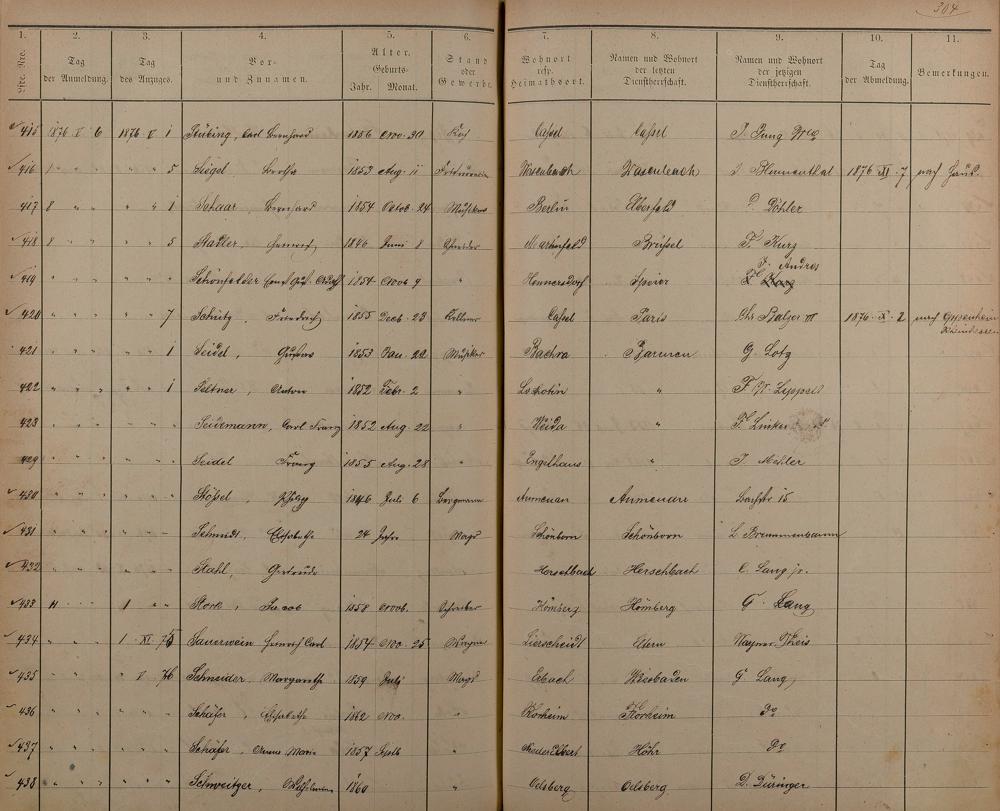 304
1. 2. 3. 4. 5. 6. 7. 8. 9. 10. 11.
Lfde. Nro. Tag der Anmeldung. Tag des Anzuges. Vor- und Zunamen. Alter. Geburts- Jahr. Monat. Stand oder Gewerbe. Wohnort resp. Heimathsort. Namen und Wohnort der letzten Dienstherrschaft. Namen und Wohnort der jetzigen Dienstherrschaft. Tag der Abmeldung. Bemerkungen.
415 1876 V 6 1876 V 1 Stübing, Carl Bernhard 1856 Nov. 30 Cassel Cassel J. Jung
416 " " " 5 Siegel Bertha 1853 Aug. 11 Wasenbach Wasenbach J. Blumenthal 1876 XI 7 nach
417 8 " " " 1 Schaar, Bernhard 1854 Octob. 24 Musiker Berlin Elberfeld Döhler
418 8 " " " 5 Stadler, Heinrich 1846 Juni 8 Schneider Martinfeld Brüssel F. Kurz
J. Andres
419 " " " " " Schönfelder 1854 Novb 9 " Hennersdorf Speier
420 " " " " 7 Schütz, Friedrich 1855 Decb. 23 Kellner Cassel Paris Chr. Balzer 1876 X 2 nach Geisenheim
421 " " " " 1 Seidel, Gustav 1853 Jan. 22 Musiker Bachra Barmen G. Lotz
422 " " " " 1 Seltner, Anton 1852 Febr. 2 " "
423 " " " " " Seidemann, Carl Franz 1852 Aug. 22 " Weida " F. Linker
429 " " " " " Seidel Franz 1855 Aug. 28 " Engelhaus " J. Mehler
430 " " " " " Stößel, Philipp 1846 Juli 6 Bergmann Aumenau Aumenau Bachstr 15
431 " " " " " Schmidt, Elisabethe 24 Jahre Magd Schönborn Schönborn L. Brennenbaum
432 " " " " " Stahl, Gertrude Herschbach Herschbach C. Lang jr.
433 11 " " 1 " " Stork, Jacob 1858 Novb. Schreiber Hömberg Hömberg G. Lang
434 " " " 1 XI 75 Sauerwein Heinrich Carl 1854 Nov. 25 Wagner Lierscheidt Ellern Wagner Theis
435 " " " " V 76 Schneider, Margarethe 1859 Juli Magd Erbach Wiesbaden G. Lang
436 " " " " " Schäfer, Elisabethe 1862 Nov. " Horheim Horheim Do
437 " " " " " Schäfer, Anna Maria 1857 " Nieder Elbert Höhr Do
438 " " " " " Schweitzer, Wilhelmine 1860 " Oelsberg Oelsberg D. Düringer